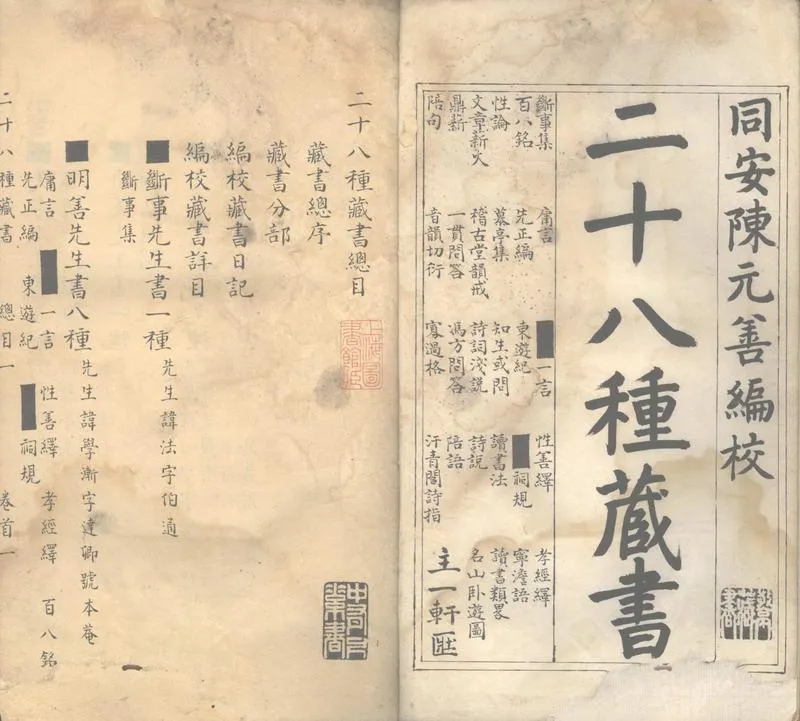 同安陳元善編校
二十八種藏書
斷事集 庸言 一言 性善繹 孝經繹
百八銘 先正編 東遊紀 祠規 寧澹語
性論 墓亭集 知生或問 讀書法 讀書類畧
文章薪火 稽古堂韻戒 詩詞浅説 詩説 名山卧遊圖
鼎薪 一貫問答 馮方問答 陪語
陪句 音韻切衍 寡過格 汗青閣詩指
主一軒
二十八種藏書總目
上海圖書館藏
藏書總序
藏書分部
編校藏書日記
編校藏書詳目
斷事先生書一種 先生諱法字伯通
斷事集
明善先生書八種 先生諱學漸字達卿號本菴
庸言 一言 性善繹 孝經繹 百八銘
先正編 東遊紀 祠規
二十八種藏書 總目一 卷首一